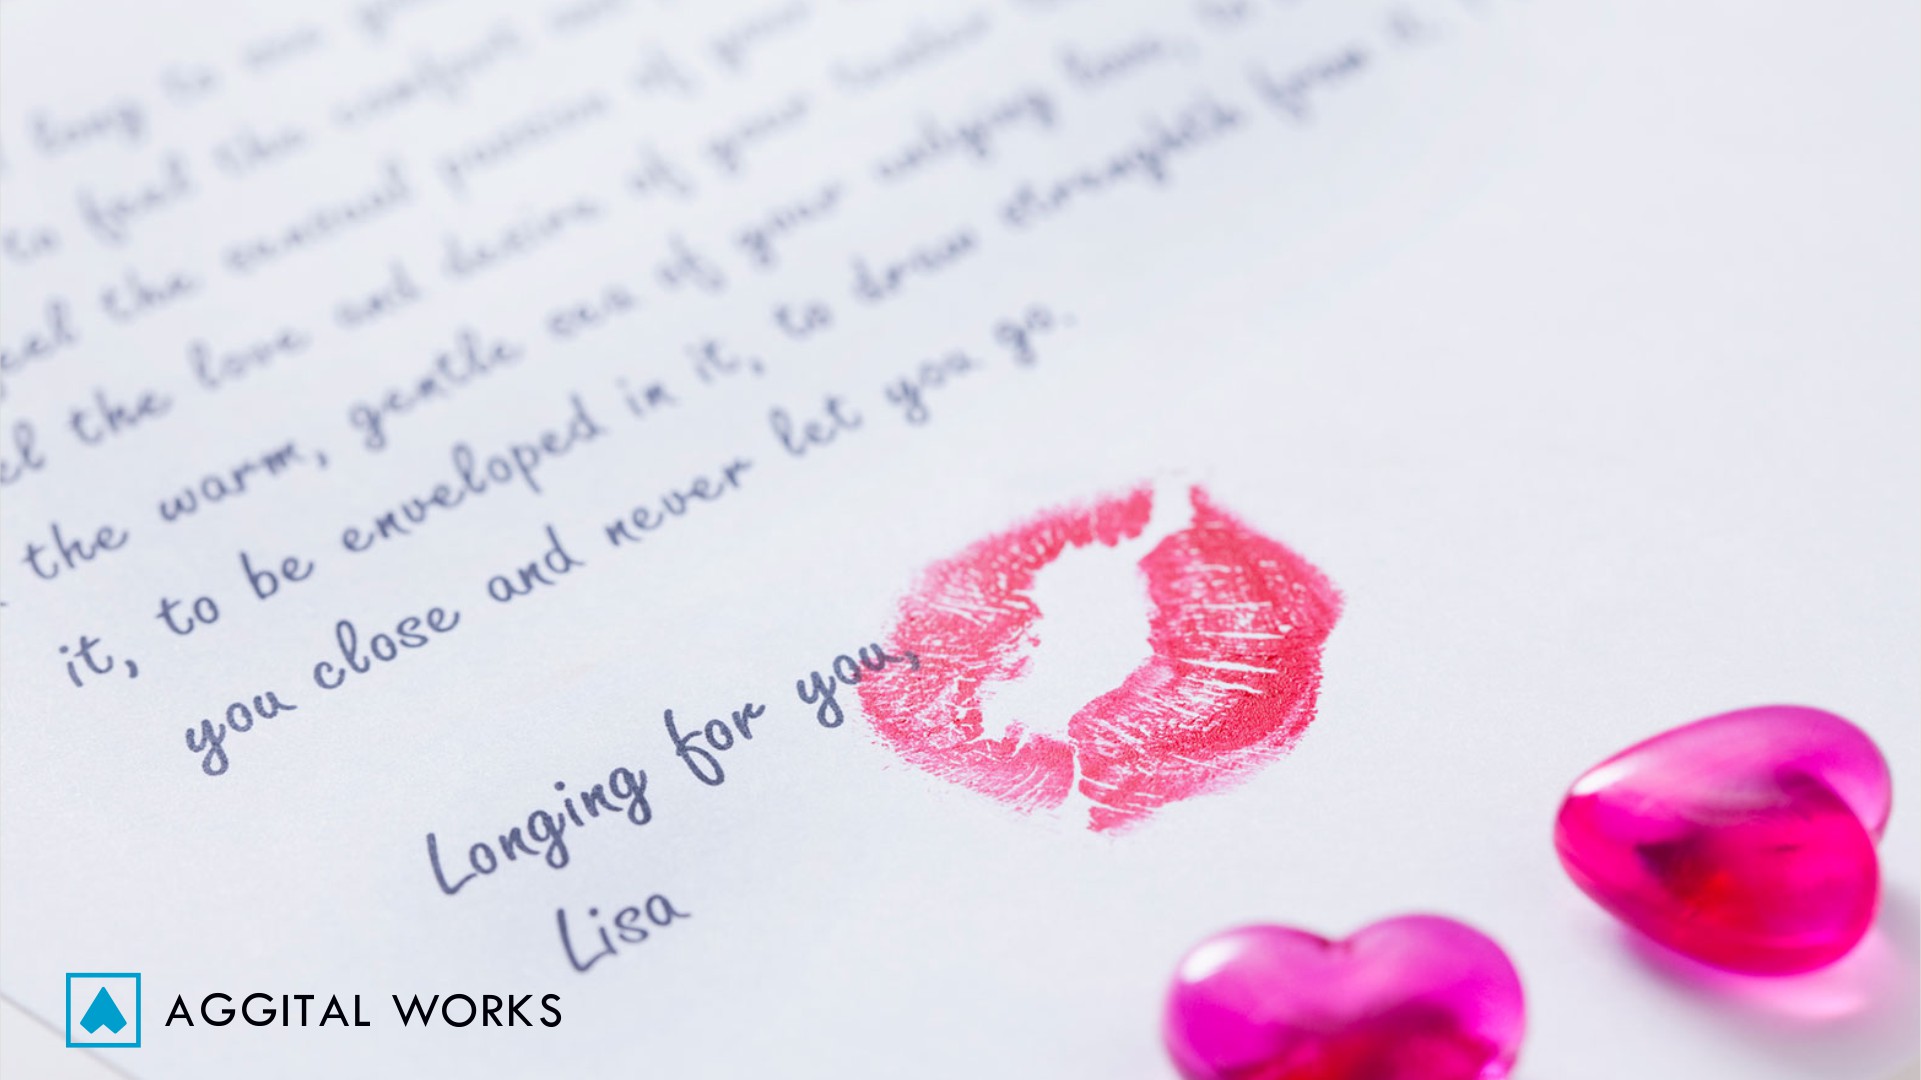 long to
to feel the comfort
feel the sensual passion of your
the love and desire of your
the warm, gentle sea of your undying love, to
it, to be enveloped in it, to draw strength from it.
you close and never let you go.
Longing for you,
Lisa
AGGITAL WORKS